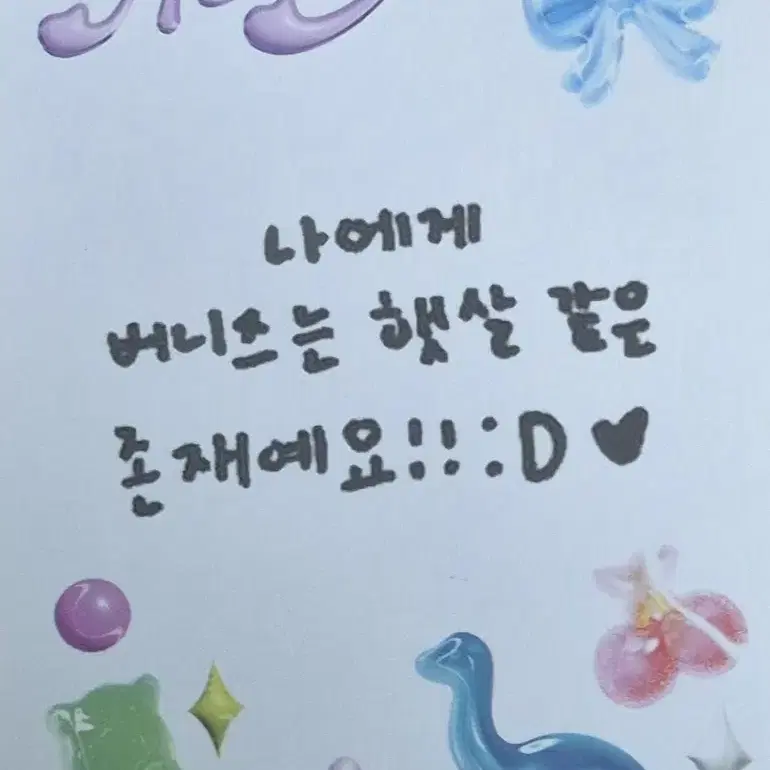 나에게
버니즈는 햇살 같은
존재예요!! :D ♥